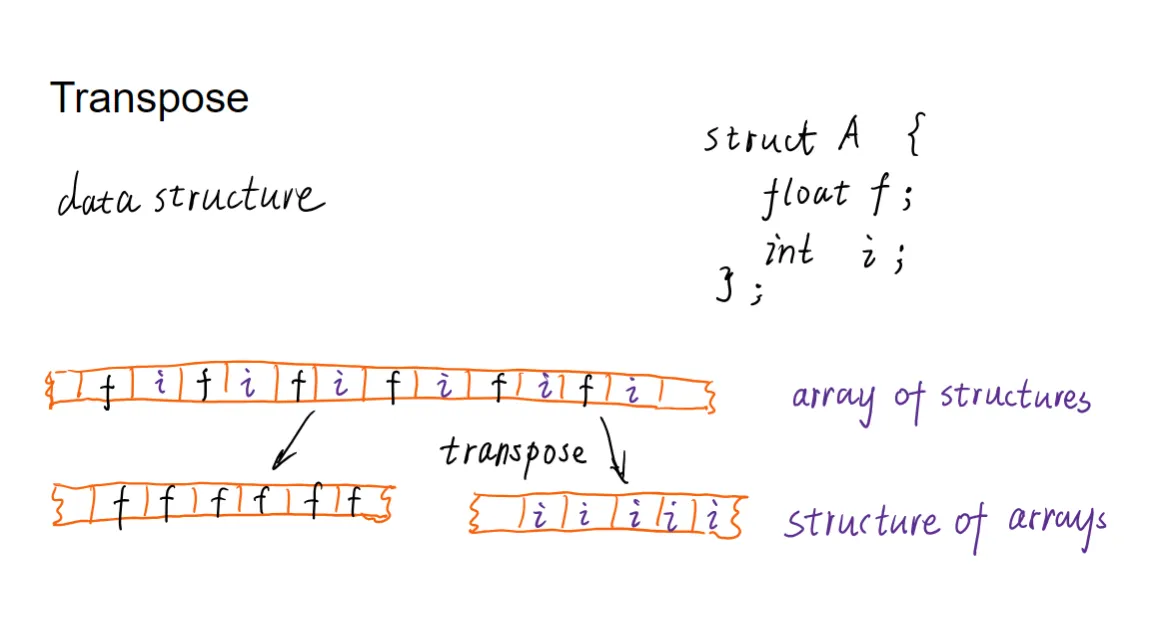 Transpose
data structure
struct A {
float f;
int i;
};
f i f i f i f i f i f i
array of structures
transpose
f f f f f f
i i i i i
structure of arrays